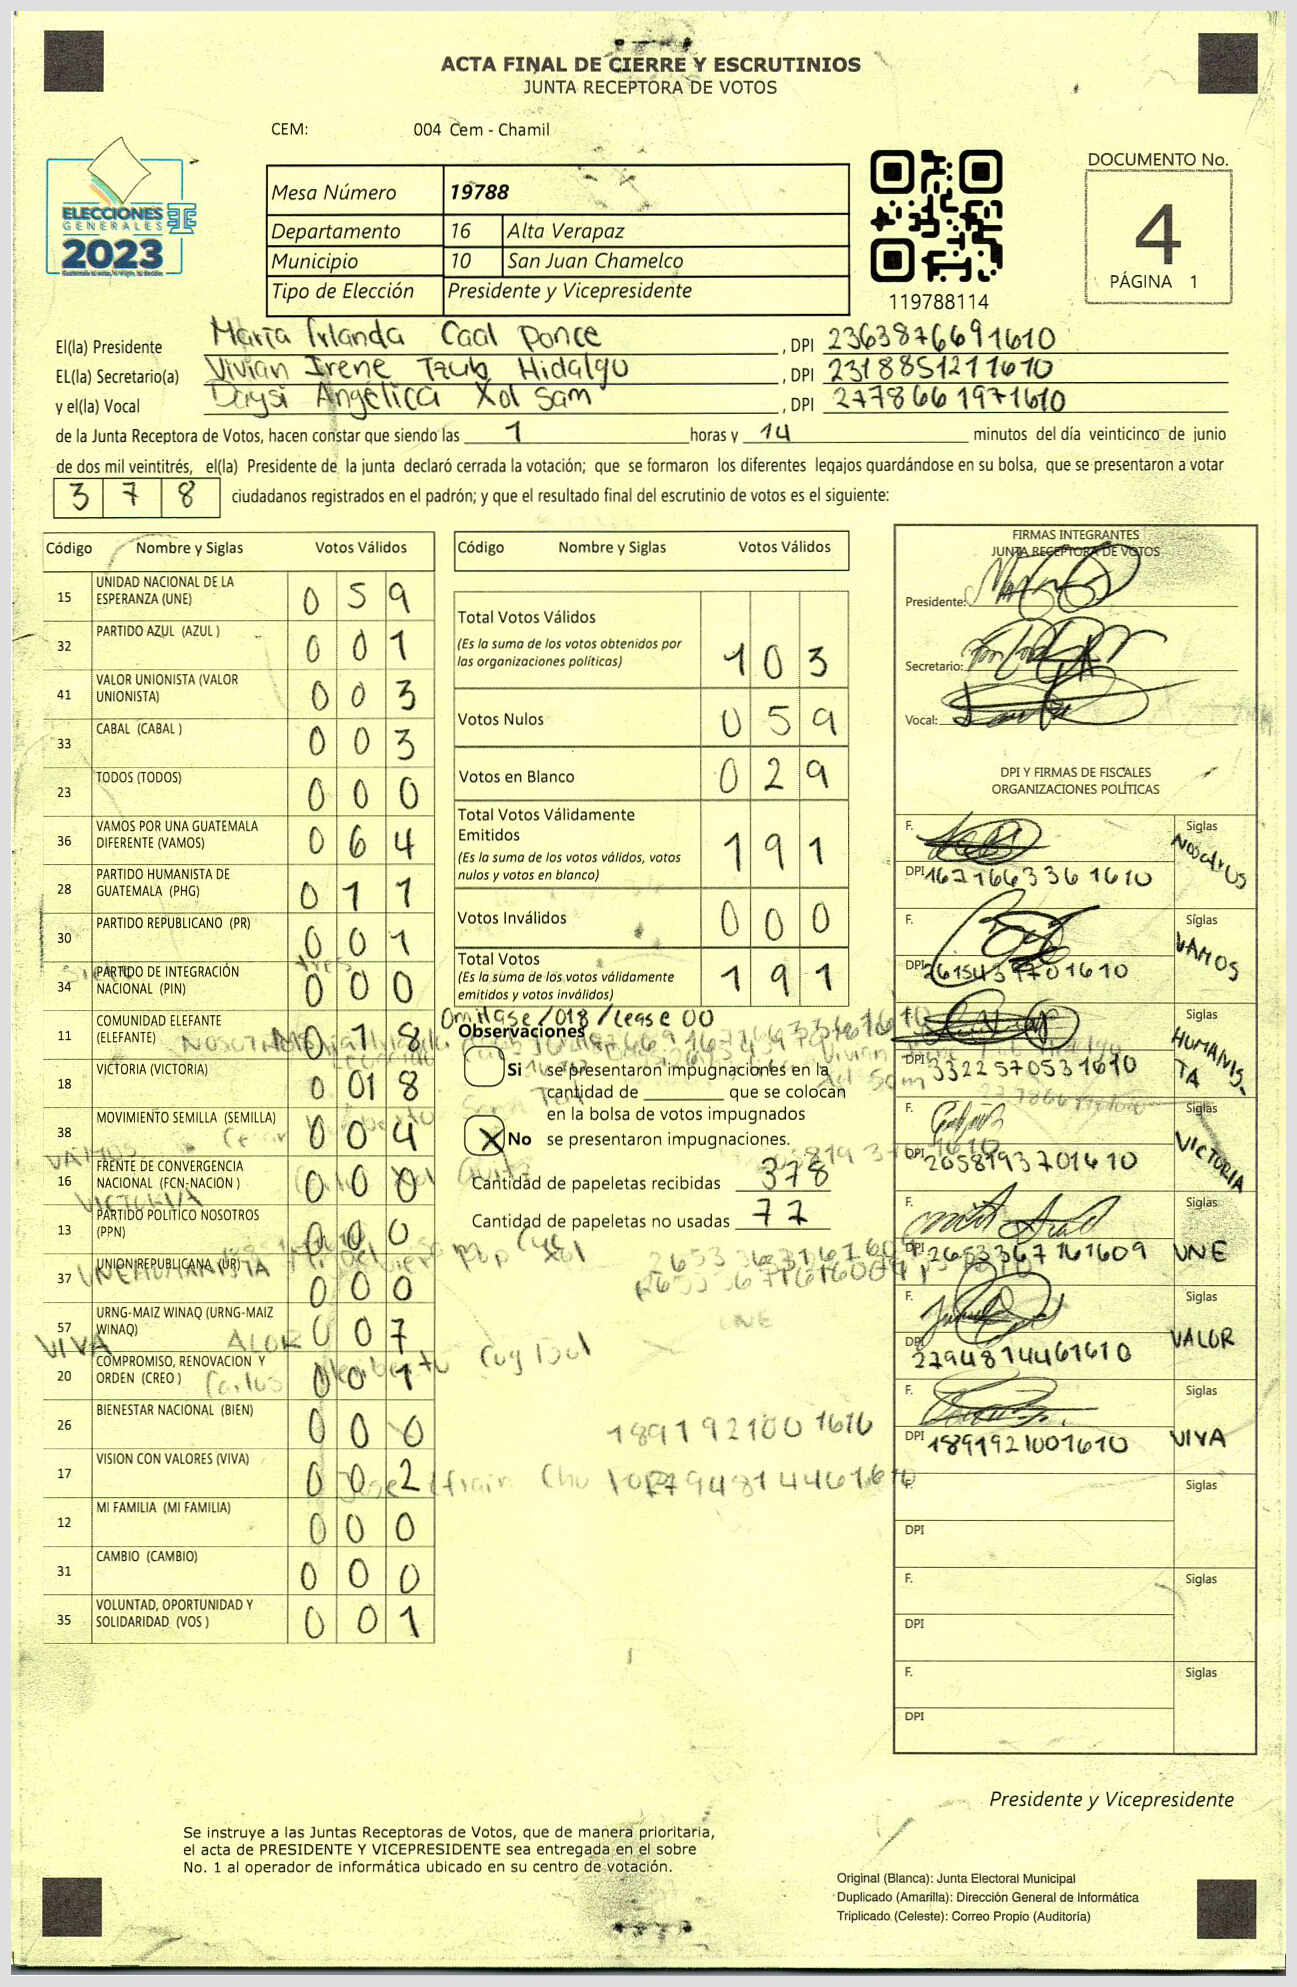 ACTA FINAL DE CIERRE Y ESCRUTINIOS
JUNTA RECEPTORA DE VOTOS
CEM: 004 Cem - Chamil
ELECCIONES
GENERALES
2023
Mesa Número 19788
Departamento 16 Alta Verapaz
Municipio 10 San Juan Chamelco
Tipo de Elección Presidente y Vicepresidente
119788114
DOCUMENTO No.
4
PÁGINA 1
El(la) Presidente María Irlanda Caal Ponce , DPI 2363876691610
EL(la) Secretario(a) Vivian Irene Tzub Hidalgo , DPI 2318851211610
y el(la) Vocal Daysi Angélica Xol Sam , DPI 2778661971610
de la Junta Receptora de Votos, hacen constar que siendo las 1 horas y 14 minutos del día veinticinco de junio
de dos mil veintitrés, el(la) Presidente de la junta declaró cerrada la votación; que se formaron los diferentes legajos guardándose en su bolsa, que se presentaron a votar
3 7 8 ciudadanos registrados en el padrón; y que el resultado final del escrutinio de votos es el siguiente:
Código Nombre y Siglas Votos Válidos
15 UNIDAD NACIONAL DE LA ESPERANZA (UNE) 0 5 9
32 PARTIDO AZUL (AZUL ) 0 0 1
41 VALOR UNIONISTA (VALOR UNIONISTA) 0 0 3
33 CABAL (CABAL ) 0 0 3
23 TODOS (TODOS) 0 0 0
36 VAMOS POR UNA GUATEMALA DIFERENTE (VAMOS) 0 6 4
28 PARTIDO HUMANISTA DE GUATEMALA (PHG) 0 1 1
30 PARTIDO REPUBLICANO (PR) 0 0 1
34 PARTIDO DE INTEGRACIÓN NACIONAL (PIN) 0 0 0
11 COMUNIDAD ELEFANTE (ELEFANTE) 0 1 8
18 VICTORIA (VICTORIA) 0 01 8
38 MOVIMIENTO SEMILLA (SEMILLA) 0 0 4
16 FRENTE DE CONVERGENCIA NACIONAL (FCN-NACION ) 0 0 0
13 PARTIDO POLITICO NOSOTROS (PPN) 0 0 0
37 UNION REPUBLICANA (UR) 0 0 0
57 URNG-MAIZ WINAQ (URNG-MAIZ WINAQ) 0 0 7
20 COMPROMISO, RENOVACION Y ORDEN (CREO ) 0 0 1
26 BIENESTAR NACIONAL (BIEN) 0 0 0
17 VISION CON VALORES (VIVA) 0 0 2
12 MI FAMILIA (MI FAMILIA) 0 0 0
31 CAMBIO (CAMBIO) 0 0 0
35 VOLUNTAD, OPORTUNIDAD Y SOLIDARIDAD (VOS ) 0 0 1
Código Nombre y Siglas Votos Válidos
Total Votos Válidos
(Es la suma de los votos obtenidos por las organizaciones políticas) 1 0 3
Votos Nulos 0 5 9
Votos en Blanco 0 2 9
Total Votos Válidamente Emitidos
(Es la suma de los votos válidos, votos nulos y votos en blanco) 1 9 1
Votos Inválidos 0 0 0
Total Votos
(Es la suma de los votos válidamente emitidos y votos inválidos) 1 9 1
Omitase /018 /Lease 00
Observaciones
Si se presentaron impugnaciones en la
cantidad de ________ que se colocan
en la bolsa de votos impugnados
X No se presentaron impugnaciones.
Cantidad de papeletas recibidas 378
Cantidad de papeletas no usadas 77
FIRMAS INTEGRANTES
JUNTA RECEPTORA DE VOTOS
Presidente:
Secretario:
Vocal:
DPI Y FIRMAS DE FISCALES
ORGANIZACIONES POLÍTICAS
F. Siglas NOSOTROS
DPI 1671663361610
F. Siglas VAMOS
DPI 2615439701610
Siglas HUMANISTA
DPI 3322570531610
F. Siglas VICTORIA
DPI 2658193701610
F. Siglas UNE
DPI 2653367161609
F. Siglas VALOR
DPI 2794814461610
F. Siglas VIVA
DPI 1891921001610
F. Siglas
DPI
F. Siglas
DPI
F. Siglas
DPI
VICTORIA
UNE HUMANISTA
VIVA
1891921001610
2794814461610
Presidente y Vicepresidente
Se instruye a las Juntas Receptoras de Votos, que de manera prioritaria,
el acta de PRESIDENTE Y VICEPRESIDENTE sea entregada en el sobre
No. 1 al operador de informática ubicado en su centro de votación.
Original (Blanca): Junta Electoral Municipal
Duplicado (Amarilla): Dirección General de Informática
Triplicado (Celeste): Correo Propio (Auditoría)